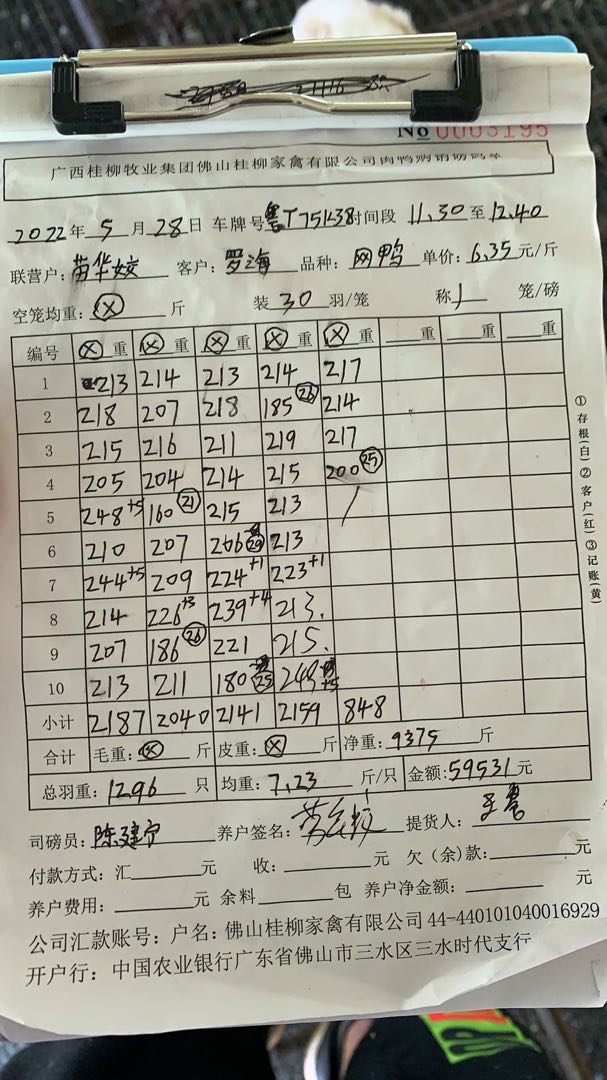 № 0003195
广西桂柳牧业集团佛山桂柳家禽有限公司肉鸭购销磅码单
2022年5月28日 车牌号粤T75K38时间段11.30至12.40
联营户:苗华姣 客户:罗海 品种:网鸭 单价:6.35元/斤
空笼均重:⊗斤 装30羽/笼 称1笼/磅
编号 ⊗重 ⊗重 ⊗重 ⊗重 ⊗重 重 重 重
1 213 214 213 214 217
2 218 207 218 185㉖ 214
3 215 216 211 219 217
4 205 204 214 215 200㉕
5 248+5 160㉑ 215 213 /
6 210 207 206㉙ 213
7 244+5 209 224+1 223+1
8 214 226+3 239+4 213.
9 207 186㉖ 221 215.
10 213 211 180㉕ 249+5
小计 2187 2040 2141 2159 848
合计 毛重:⊗斤 皮重:⊗斤 净重:9375斤
总羽重:1296只 均重:7.23斤/只 金额:59531元
司磅员:陈建宁 养户签名: 提货人:
付款方式:汇 元 收: 元 欠(余)款: 元
养户费用: 元 余料 包 养户净金额: 元
公司汇款账号:户名:佛山桂柳家禽有限公司 44-440101040016929
开户行:中国农业银行广东省佛山市三水区三水时代支行
①存根(白)②客户(红)③记账(黄)